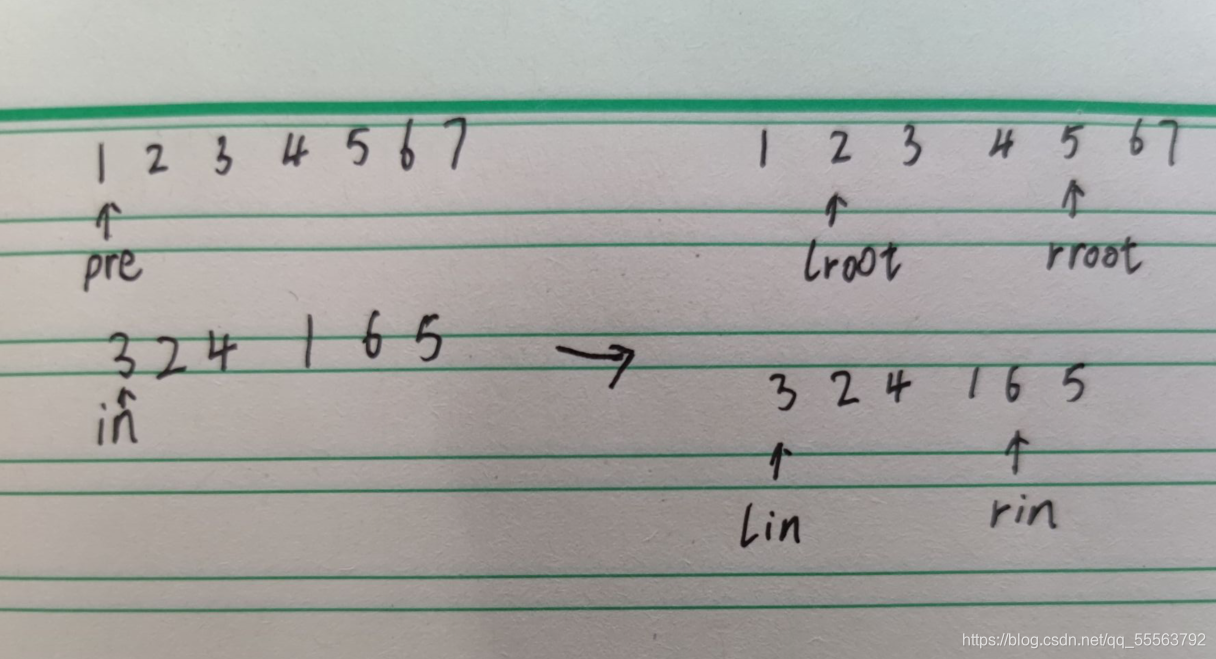 1 2 3 4 5 6 7
↑
pre
3 2 4 1 6 5
↑
in
→
1 2 3 4 5 6 7
↑ ↑
lroot rroot
3 2 4 1 6 5
↑ ↑
Lin rin
https://blog.csdn.net/qq_55563792